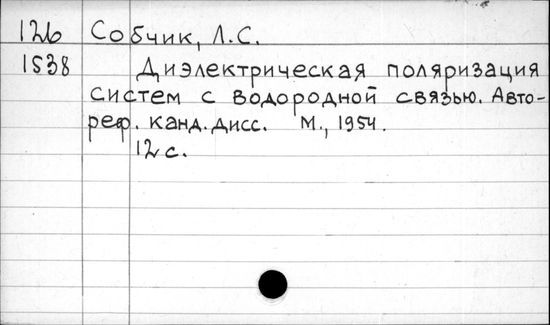 126 Собчик, Л.С.
1538 Диэлектрическая поляризация
систем с водородной связью. Авто-
реф. канд. дисс. М., 1954.
12 с.